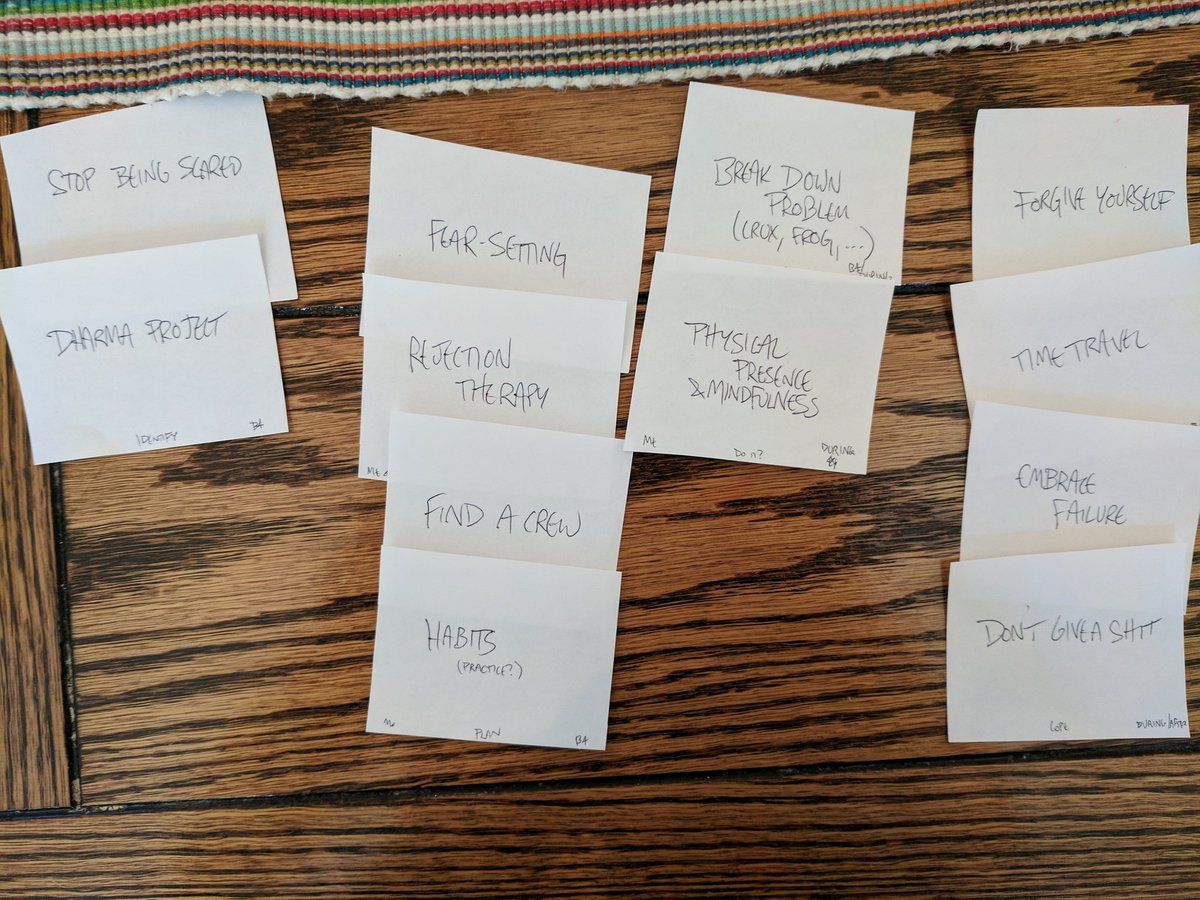 STOP BEING SCARED
DHARMA PROJECT
IDENTIFY
B4
FEAR-SETTING
REJECTION
THERAPY
ME &
FIND A CREW
HABITS
(PRACTICE?)
ME
PLAN
B4
BREAK DOWN
PROBLEM
(CRUX, FROG, ...)
B4
PHYSICAL
PRESENCE
& MINDFULNESS
ME
DO IT?
DURING
FORGIVE YOURSELF
TIME TRAVEL
EMBRACE
FAILURE
DON'T GIVE A SHIT
COPE
DURING/AFTER